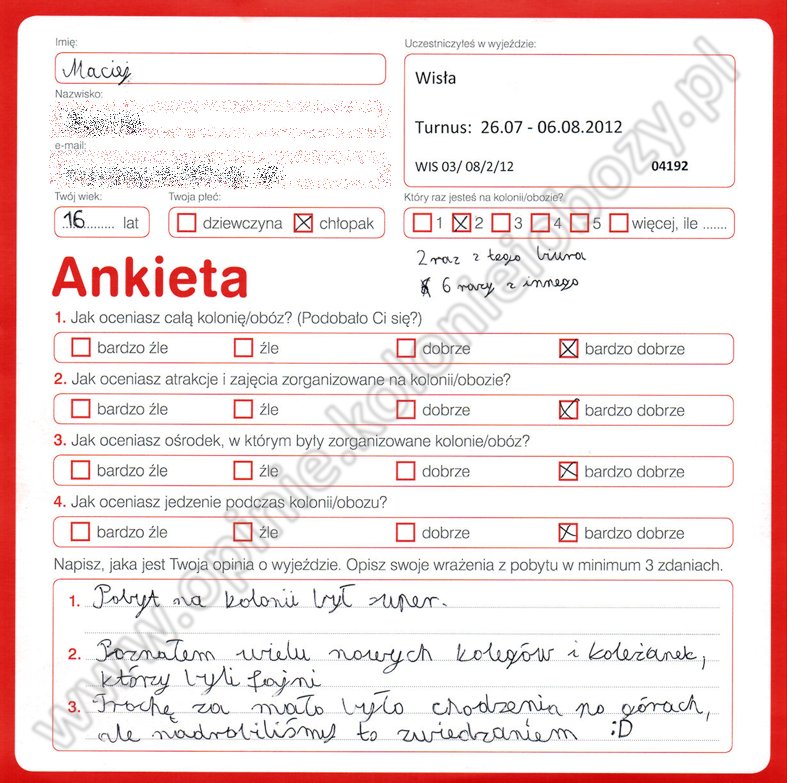 Imię:
Maciej
Nazwisko:
e-mail:
Twój wiek:
16 lat
Twoja płeć:
dziewczyna chłopak
Uczestniczyłeś w wyjeździe:
Wisła
Turnus: 26.07 - 06.08.2012
WIS 03/ 08/2/12 04192
Który raz jesteś na kolonii/obozie?
1 2 3 4 5 więcej, ile .......
2 raz z tego biura
6 razy z innego
Ankieta
1. Jak oceniasz całą kolonię/obóz? (Podobało Ci się?)
bardzo źle źle dobrze bardzo dobrze
2. Jak oceniasz atrakcje i zajęcia zorganizowane na kolonii/obozie?
bardzo źle źle dobrze bardzo dobrze
3. Jak oceniasz ośrodek, w którym były zorganizowane kolonie/obóz?
bardzo źle źle dobrze bardzo dobrze
4. Jak oceniasz jedzenie podczas kolonii/obozu?
bardzo źle źle dobrze bardzo dobrze
Napisz, jaka jest Twoja opinia o wyjeździe. Opisz swoje wrażenia z pobytu w minimum 3 zdaniach.
1. Pobyt na kolonii był super.
2. Poznałem wielu nowych kolegów i koleżanek,
którzy byli fajni
3. Trochę za mało było chodzenia po górach,
ale nadrobiliśmy to zwiedzaniem :D
www.opinie.kolonieiobozy.pl